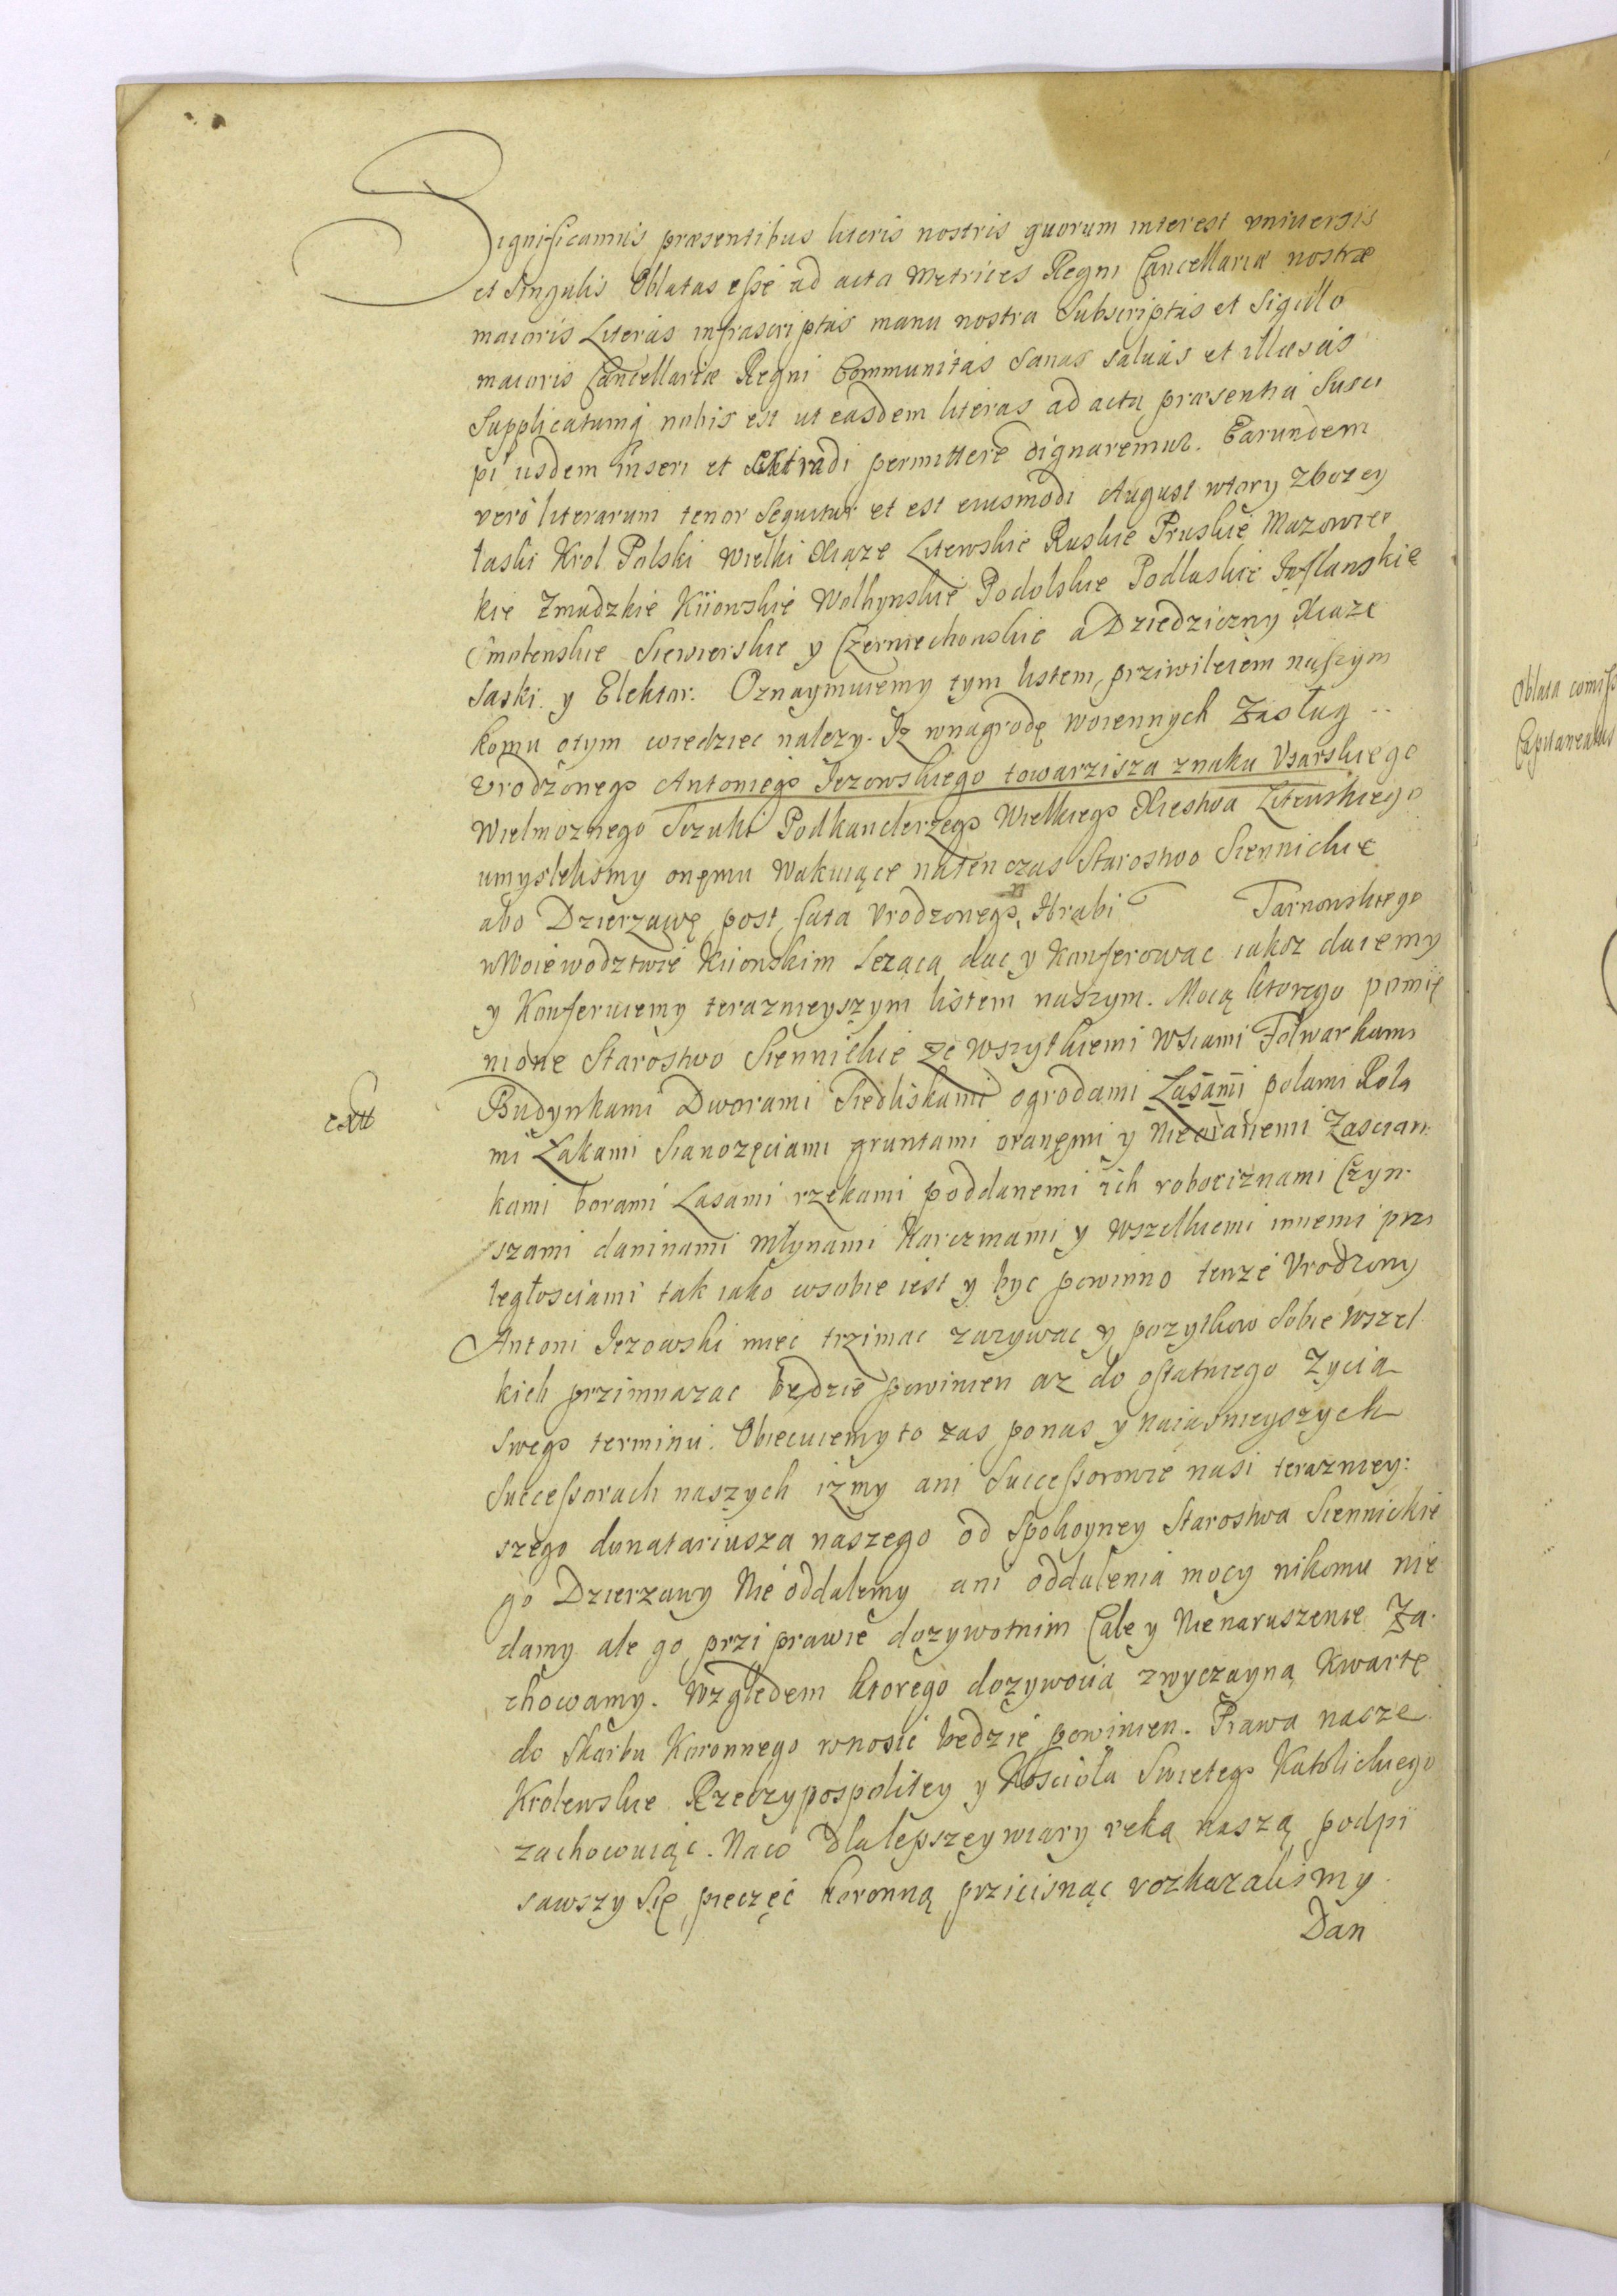 Significamus præsentibus literis nostris quorum interest vniuersis
et Singulis Oblatas esse ad acta Metrices Regni Cancellariæ nostræ
maioris Literas infrascriptas manu nostra Subscriptas et Sigillo
maioris Cancellariæ Regni Communitas Sanas saluas et illæsas
Supplicatumq nobis est ut easdem literas ad acta præsentia Susci
pi iisdem inseri et extradi permittere dignaremur. Earundem
vero literarum tenor Sequitur et est eiusmodi August wtory zbozey
łaski Krol Polski Wielki Xiąze Litewskie Ruskie Pruskie Mazowiec
kie Zmudzkie Kiiowskie Wolhynskie Podolskie Podlaskie Inflanskie
Smolenskie Siewierskie y Czerniechowskie a Dziedziczny Xiaze
Saski y Elektor. Oznaymuiemy tym listem prziwileiem naszym
komu otym wiedziec nalezy. Iz wnagrodę woiennych Zasług ..
Vrodzonego Antoniego Jezowskiego towarzisza znaku Vsarskiego
Wielmoznego Sczuki Podkanclerzego Wielkiego Xiestwa Litewskiego
umyslelismy onęmu Wakuiące natenczas Starostwo Siennickie
abo Dzierzawę post fata Vrodzonego Hrabi Tarnowskiego
w Woiewodztwie Kiionskim lezącą dac y Konferowac iakoz daiemy
y Konferuiemy terazneyszym listem naszym. Mocą ktorego pomię
nione Starostwo Siennickie ze wszytkiemi Wsiami Folwarkami
Budynkami Dworami Siedliskami ogrodami Lasami polami Rola
mi Łakami Sianozęciami gruntami oranęmi y Nieoranemi Zascian
kami borami Lasami rzekami poddanemi ich robociznami Czyn
szami daninami Młynami Karczmami y wszelkiemi innemi prz
ległosciami tak iako wsobie iest y byc powinno tenze Vrodzony
Antoni Jezowski miec trzimac zazywac y pozytkow Sobie wszel
kich przimnazac będzie powinien az do ostatniego Zycia
swego terminu. Obiecuiemy to zas ponas y Naiasnieyszych
Successorach naszych izmy ani Successorowie nasi terazniey:
szego donatariusza naszego od Spokoyney Starostwa Siennickie
go Dzierzawy Nie oddalemy ani oddalenia mocy nikomu nie
damy ale go przi prawie dozywotnim Cale y Nienaruszenie Za
chowamy. Względem ktorego dozywocia zwyczayną Kwartę
do Skarbu Koronnego wnosic będzie powinien. Prawa nasze
Krolewskie Rzeczypospolitey y Kosciola Swietego Katolickiego
zachowuiąc. Naco dlalepszey wiary ręką naszą podpi
sawszy Się pieczęć koronną przicisnąc rozkazalismy.
Dan
Oblata
Capitaneatus